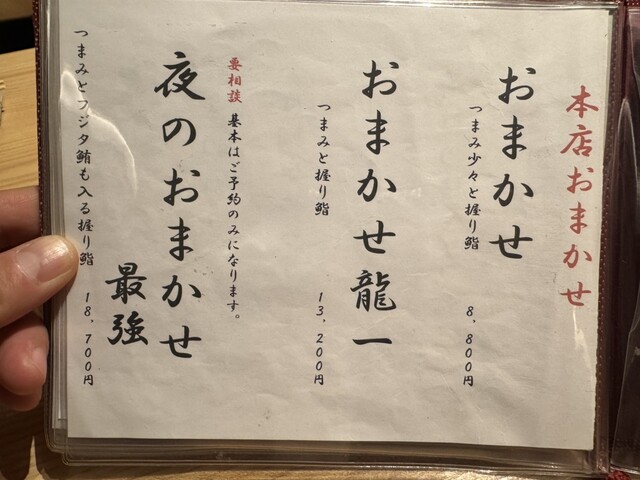 本店おまかせ
おまかせ
つまみ少々と握り鮨 8,800円
おまかせ龍一
つまみと握り鮨 13,200円
要相談 基本はご予約のみになります。
夜のおまかせ
最強
つまみとフジタ鮪も入る握り鮨 18,700円